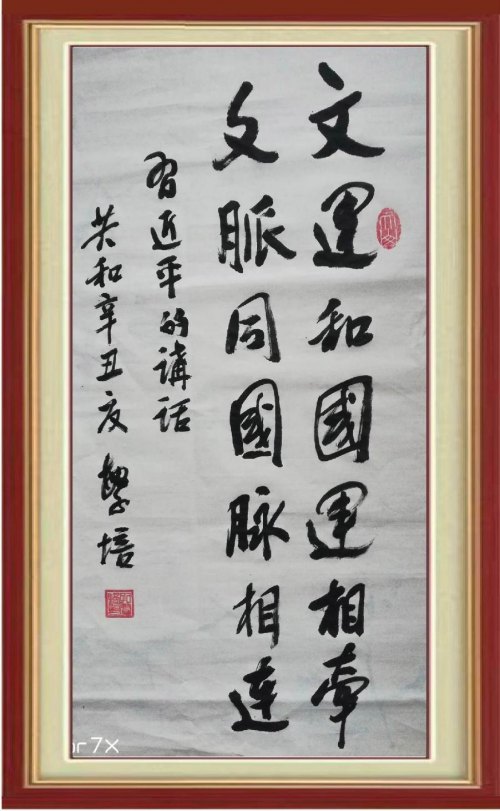 文運和國運相牽
文脈同國脉相連
習近平的講話
共和辛丑夏 培
or 7X